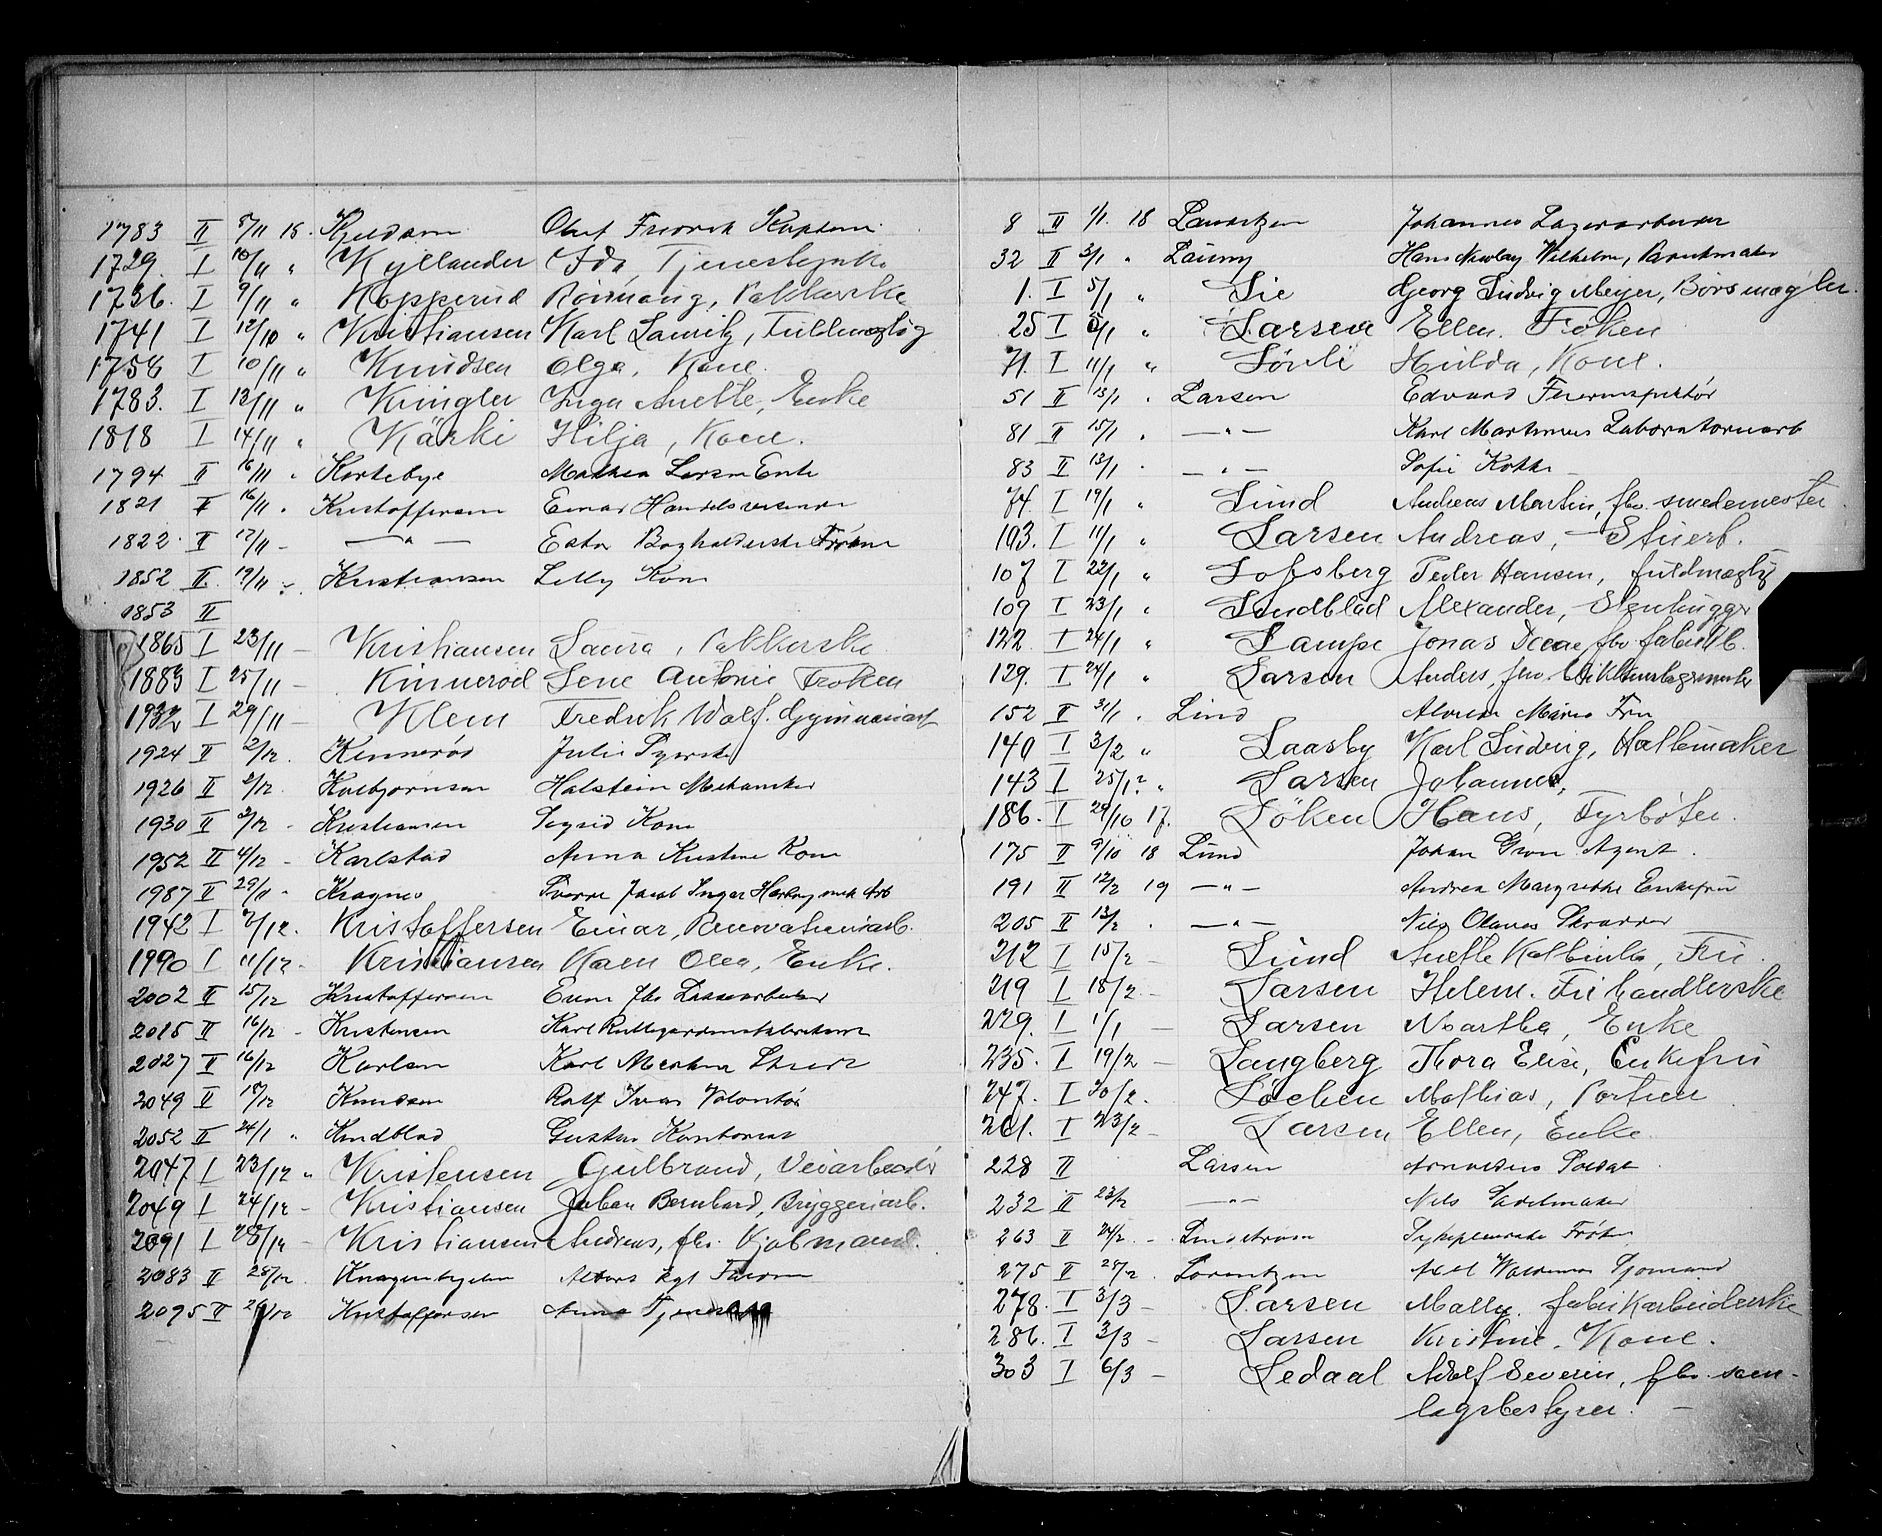 1783 II 8/11 18. Kjeldsen Olaf Fredrik Kaptein
1729. I 10/11 " Kyllander Ida, Tjenestepike
1736. I 9/11 " Kopperud Pakkerske
1741 I 12/10 " Kristiansen Karl Lauritz, Fuldmægtig
1758 I 10/11 " Knudsen Olga, Kone.
1783. I 13/11 " Kringler Inga Anette, Enke
1818 I 14/11 " Kärki Hilja, Kone.
1794 II 16/11 " Kortebye Mathea Enke
1821 II 16/11 " Kristoffersen Einar Handelsreisende
1822 II 17/11 - — " — Ester Bogholderske Frøken
1852 II 19/11 - Kristiansen Lilly Kone
1853 II
1865 I 23/11 - Kristiansen Laura, Pakkerske
1883 I 25/11 - Kinnerød Lene Antonie Frøken
I 29/11 - Klem Fredrik Wolf. Gymnasiast
1924 II 2/12. Kinnerød Julie Syerske
1926 II 2/12. Kolbjørnsen Halstein Mekaniker
1930 II 2/12 - Kristiansen Sigrid Kone
1952 II 4/12 - Karlstad Anna Kristine Kone
1987 II 29/11 - Kragnes Sverre Jacob Inger
1942 I 7/12. Kristoffersen Einar, Renovationsarb.
1990 I 11/12 - Kristiansen Karen Olea, Enke.
2002 II 15/12 Kristoffersen fhv
2015 II 16/12 - Kristensen Karl
2027 II 16/12 Karlsen Karl
2049 II 17/12 Knudsen Rolf Ivar Volontør
2052 II 24/1 " Kindblad Gustav Kontorist
2047 I 23/12 " Kristensen Gulbrand, Veiarbeider
2049 I 24/12 - Kristiansen Johan Bernhard, Bryggeriarb.
2091 I 28/12 - Kristiansen Andreas, fhv. Kjølmand.
2083 II 28/12. Kragenbyelen
2095 II Kristoffersen Anna
8 II 1/1. 18 Lauritzen Johannes Lagerarbeider
32 II 3/1 " Hans Nicolay Wilhelm,
1. I 5/1 " Lie Georg Ludvig Meyer, Børsmægler.
25 I 5/1 " Larsen Ellen. Frøken
71. I 11/1 " Lövli Hulda, Kone.
51 II 13/1 " Larsen Edvard
81 II 15/1 " — " — Karl Martinius Laboratoriearb
83 II 13/1 " — " — Sofie Kokke
74. I 19/1 " Lund Andreas Martin, fhv. smedemester.
103. I 11/1 " Larsen Andreas, - Stuerb.
107 I 22/1 " Lofsberg Peder Hansen, fuldmægtig
109 I 23/1 " Lindblad Alexander, Stenhugger
122. I 24/1 " Lampe Jonas fhv fabrikb.
129. I 24/1 " Larsen Anders, fhv.
152 II 31/1 " Lind Fru
140 I 3/2 " Laasby Karl Ludvig, Hattemaker
143 I 25/1? " Larsen Johannes,
186. I 29/10 17. Löken Hans, Fyrbøter.
175 II 9/10 18 Lund Johan Agent.
191 II 12/2 19 — " — Andrea Margrethe Enkefru
205 II 13/2 " — " — Nils Olaves Skrædder
212 I 15/2 - Lund Anette Kathinka, Fru.
219 I 18/2 - Larsen Helene. Fishandlerske
229. I 1/1 — Larsen Martha, Enke
235. I 19/2 — Langberg Thora Elise, Enkefru
247. I 20/2. Löchen Mathias, Portner
261. I 23/2 - Larsen Ellen, Enke.
228 II Larsen Soldat
232 II 23/2 — " — Nils Sadelmaker
263 II 24/2. - Lindstrøm Sykepleierske Frøken
275 II 28/2. Lorentzen Axel Waldemar Sjømand
278. I 3/3 - Larsen Mally. fabrikarbeiderske
286. I 3/3 - Larsen Kristine. Kone.
303 I 6/3 - Ledaal Adolf Severin, fhv. sam-
lagsbestyrer. -